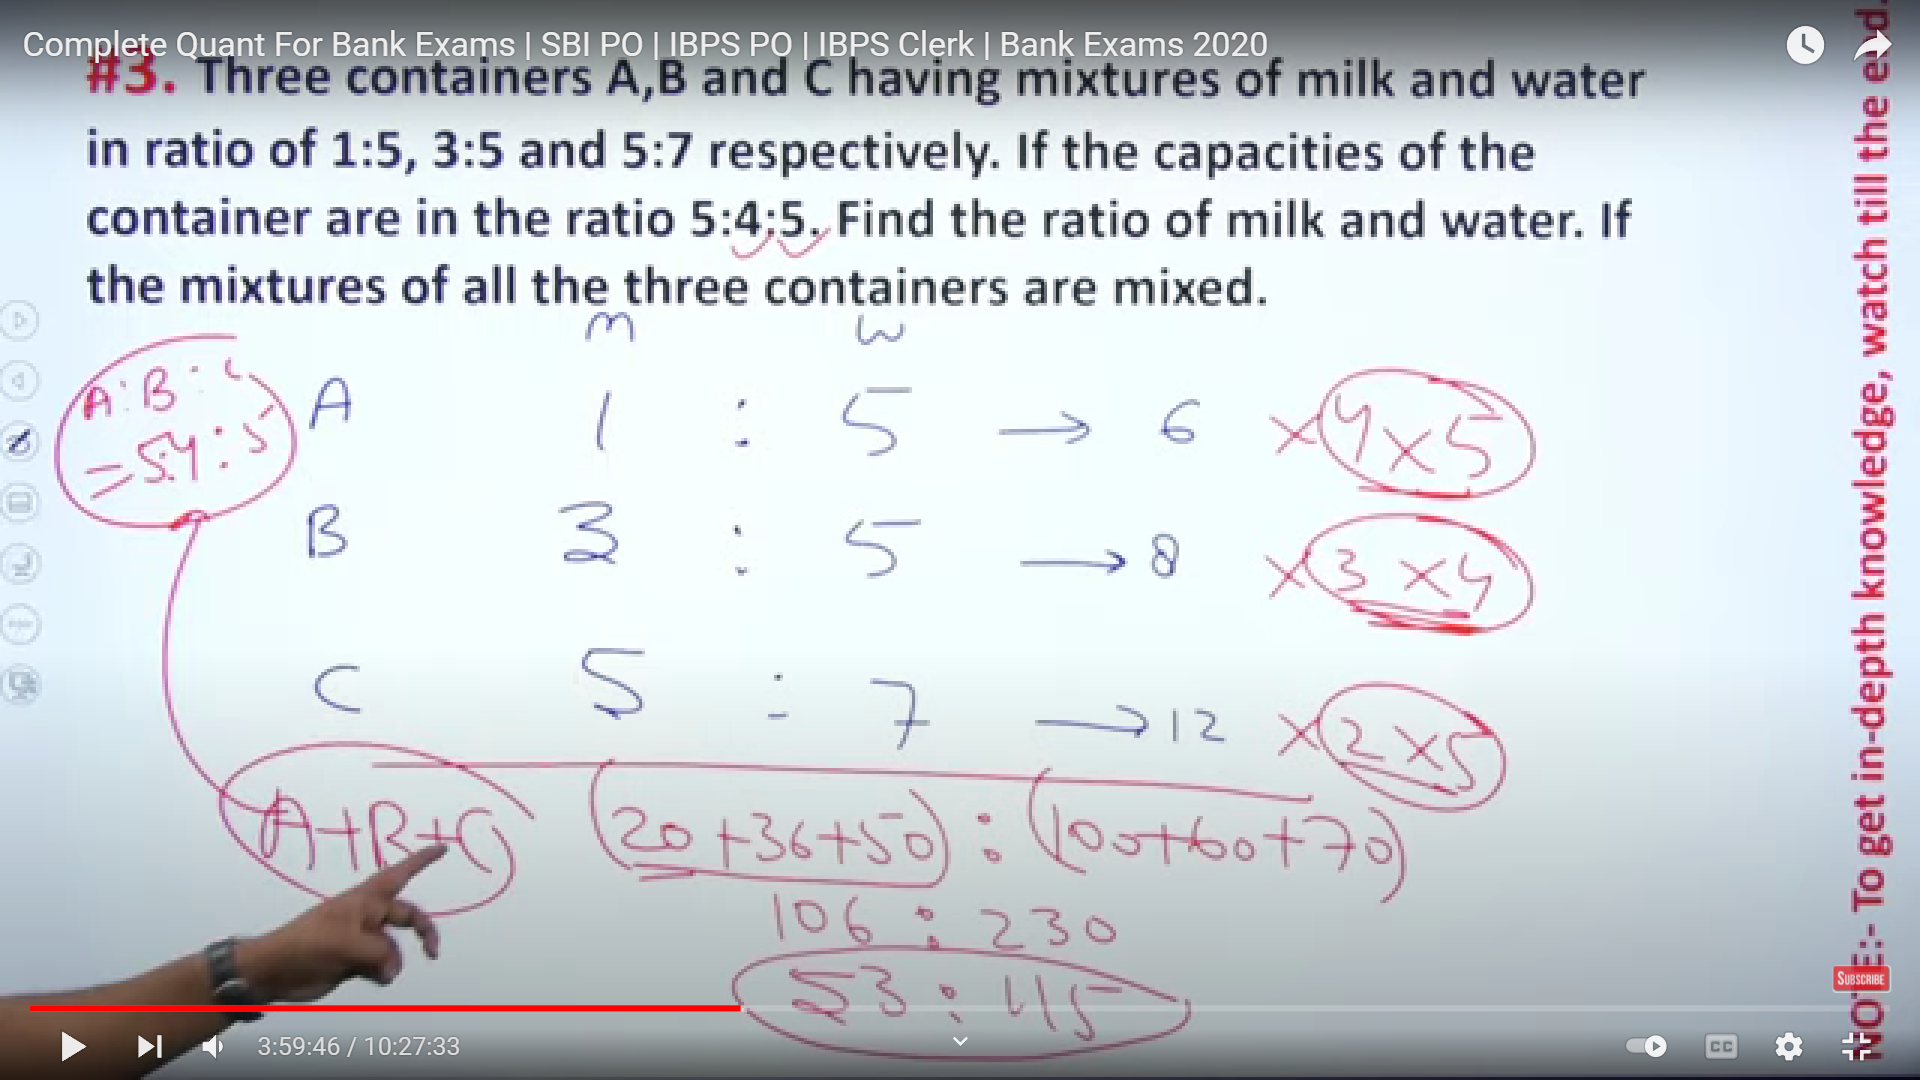 Complete Quant For Bank Exams | SBI PO | IBPS PO | IBPS Clerk | Bank Exams 2020
#3. Three containers A,B and C having mixtures of milk and water
in ratio of 1:5, 3:5 and 5:7 respectively. If the capacities of the
container are in the ratio 5:4:5. Find the ratio of milk and water. If
the mixtures of all the three containers are mixed.
M W
A:B:C
=5:4:5
A 1 : 5 → 6 ×4×5
B 3 : 5 → 8 ×3×4
C 5 : 7 → 12 ×2×5
A+B+C (20+36+50) : (100+60+70)
106 : 230
53 : 115
NOTE:- To get in-depth knowledge, watch till the end.
SUBSCRIBE
3:59:46 / 10:27:33
CC